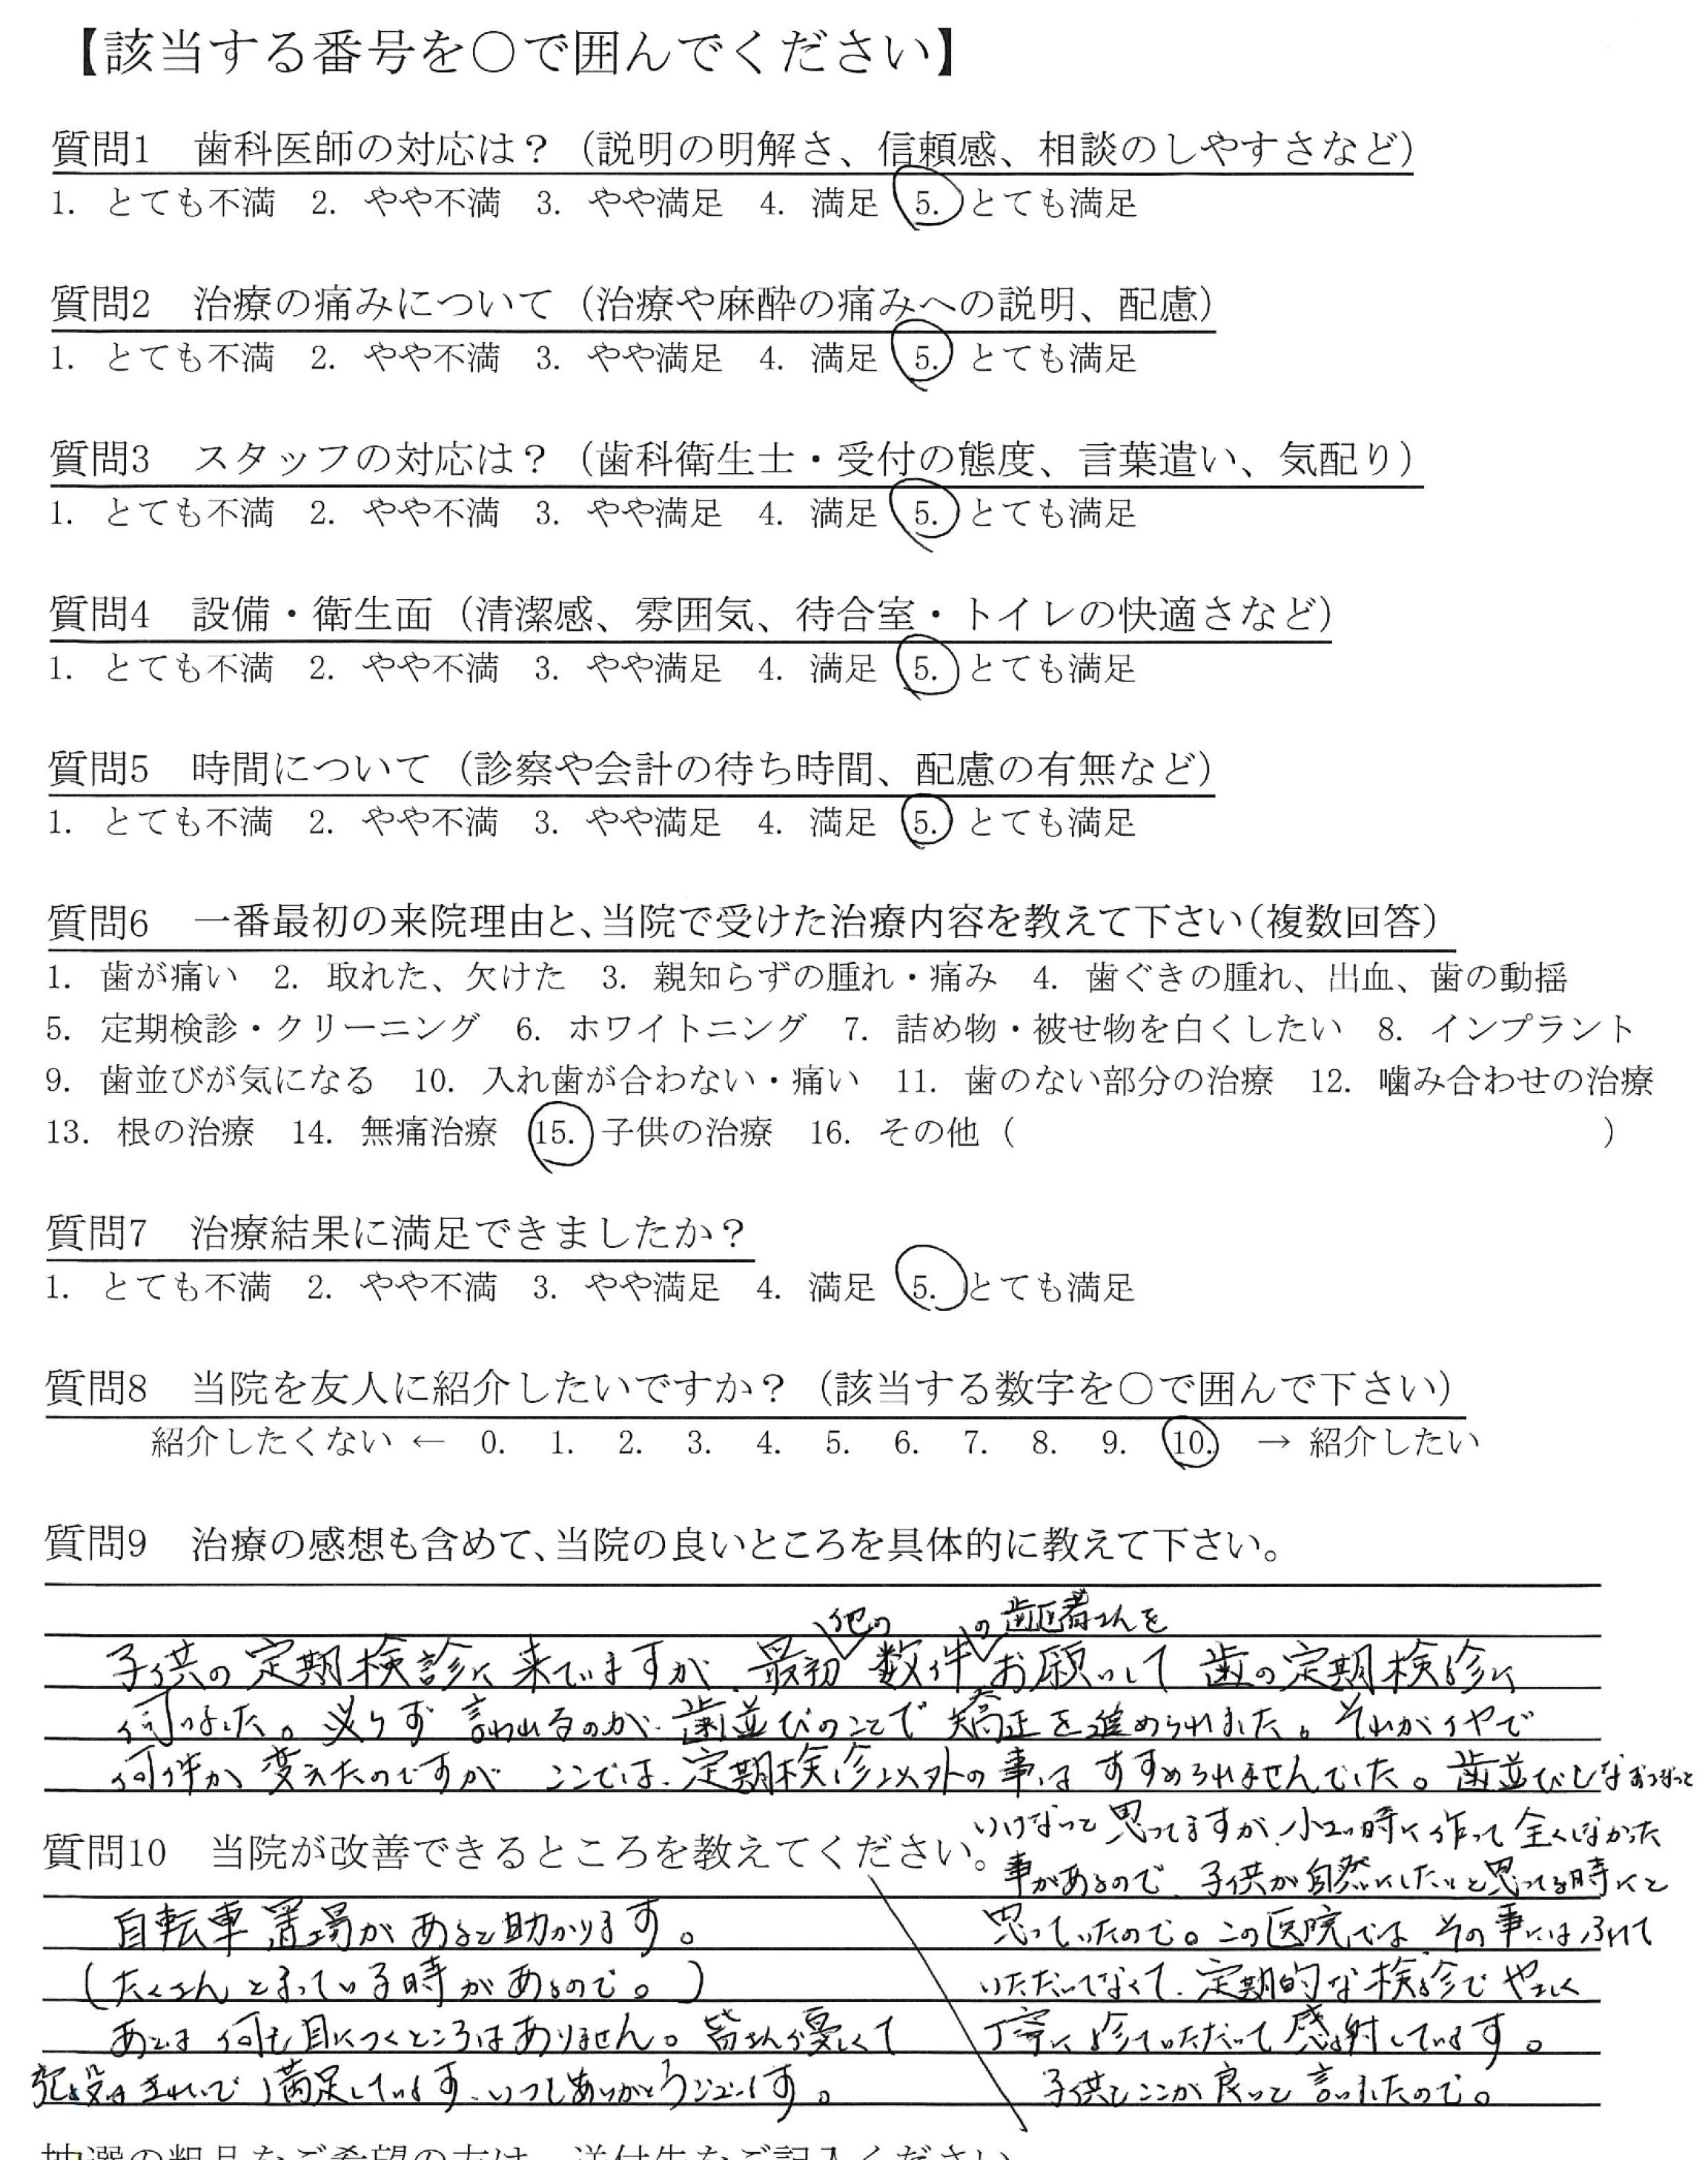 【該当する番号を○で囲んでください】
質問1 歯科医師の対応は？（説明の明解さ、信頼感、相談のしやすさなど）
1. とても不満 2. やや不満 3. やや満足 4. 満足 5. とても満足
質問2 治療の痛みについて（治療や麻酔の痛みへの説明、配慮）
1. とても不満 2. やや不満 3. やや満足 4. 満足 5. とても満足
質問3 スタッフの対応は？（歯科衛生士・受付の態度、言葉遣い、気配り）
1. とても不満 2. やや不満 3. やや満足 4. 満足 5. とても満足
質問4 設備・衛生面（清潔感、雰囲気、待合室・トイレの快適さなど）
1. とても不満 2. やや不満 3. やや満足 4. 満足 5. とても満足
質問5 時間について（診察や会計の待ち時間、配慮の有無など）
1. とても不満 2. やや不満 3. やや満足 4. 満足 5. とても満足
質問6 一番最初の来院理由と、当院で受けた治療内容を教えて下さい（複数回答）
1. 歯が痛い 2. 取れた、欠けた 3. 親知らずの腫れ・痛み 4. 歯ぐきの腫れ、出血、歯の動揺
5. 定期検診・クリーニング 6. ホワイトニング 7. 詰め物・被せ物を白くしたい 8. インプラント
9. 歯並びが気になる 10. 入れ歯が合わない・痛い 11. 歯のない部分の治療 12. 噛み合わせの治療
13. 根の治療 14. 無痛治療 15. 子供の治療 16. その他（ ）
質問7 治療結果に満足できましたか？
1. とても不満 2. やや不満 3. やや満足 4. 満足 5. とても満足
質問8 当院を友人に紹介したいですか？（該当する数字を○で囲んで下さい）
紹介したくない ← 0. 1. 2. 3. 4. 5. 6. 7. 8. 9. 10. → 紹介したい
質問9 治療の感想も含めて、当院の良いところを具体的に教えて下さい。
他の の歯医者さんを
子供の定期検診に来ていますが、最初 数件 お願いして歯の定期検診に
伺いました。必らず言われるのが、歯並びのことで矯正を進められました。それがイヤで
何件か変えたのですが ここでは、定期検診以外の事はすすめられませんでした。歯並びもなおさないと
いけないと思ってますが、小さい時に作って全くしなかった
質問10 当院が改善できるところを教えてください。
事があるので、子供が自然にしたいと思ってる時にと
自転車置場があると助かります。
思っていたので。この医院では その事にはふれて
（たくさんとまっている時があるので。）
いただいてなくて、定期的な検診でやさしく
あとは何も目につくところはありません。皆さん優しくて
丁寧に診ていただいて感謝しています。
きれいで満足しています。いつもありがとうございます。
子供もここが良いと言いましたので。
抽選の粗品をご希望の方は、送付先をご記入ください